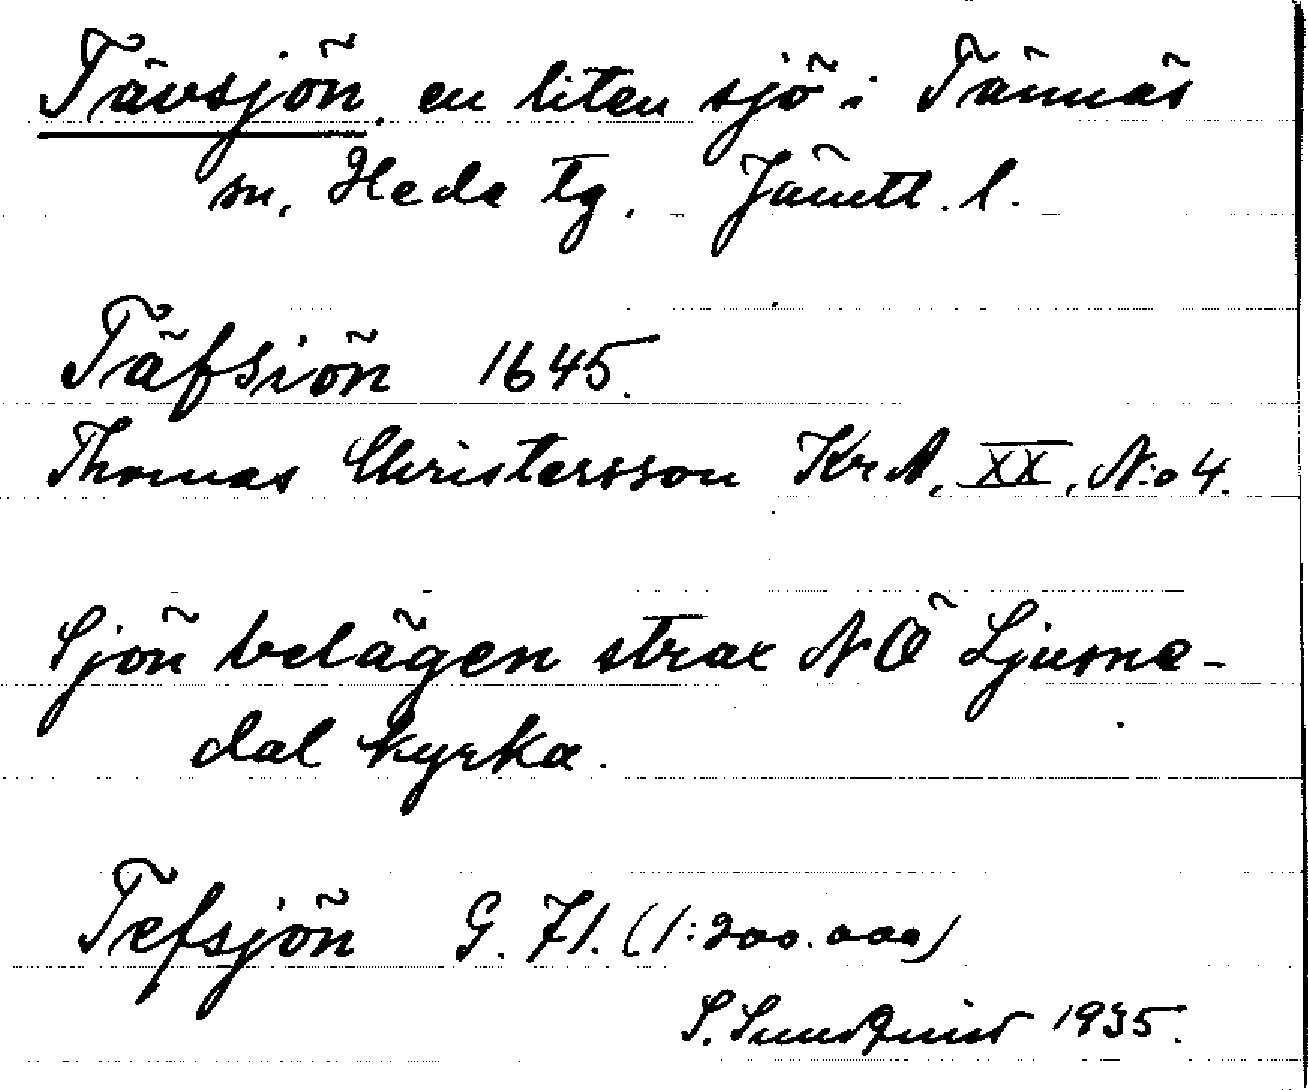 Tävsjön, en liten sjö i Tännäs
sn, Hede tg. Jämtl. l.
Täfsiön 1645.
Thomas Christersson KrA, XX, N:o 4.
Sjön belägen strax NÖ Ljusne-
dal kyrka.
Tefsjön G. 71. (1:200.000)
S. Sundquist 1935.